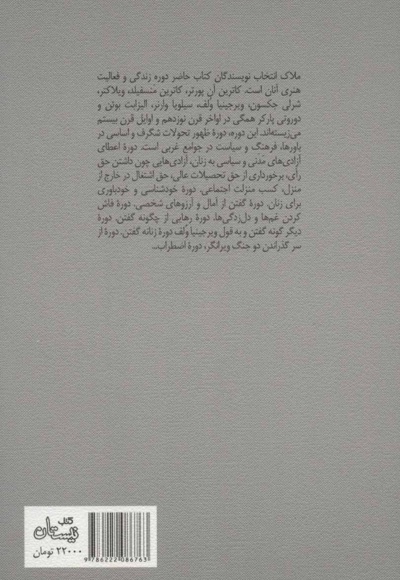 ملاک انتخاب نویسندگان کتاب حاضر دوره زندگی و فعالیت
هنری آنان است. کاترین آن پورتر، کاترین منسفیلد، ویلاکتر،
شرلی جکسون، ویرجینیا وُلف، سیلویا وارنر، الیزابت بوئن و
دوروتی پارکر همگی در اواخر قرن نوزدهم و اوایل قرن بیستم
می‌زیسته‌اند. این دوره، دورهٔ ظهور تحولات شگرف و اساسی در
باورها، فرهنگ و سیاست در جوامع غربی است. دورهٔ اعطای
آزادی‌های مَدنی و سیاسی به زنان، آزادی‌هایی چون داشتن حق
رأی، برخورداری از حق تحصیلات عالی، حق اشتغال در خارج از
منزل، کسب منزلت اجتماعی. دورهٔ خودشناسی و خودباوری
برای زنان. دورهٔ گفتن از آمال و آرزوهای شخصی. دورهٔ فاش
کردن غم‌ها و دل‌زدگی‌ها. دورهٔ رهایی از چگونه گفتن. دورهٔ
دیگر گونه گفتن و به قول ویرجینیا وُلف دورهٔ زنانه گفتن. دورهٔ از
سر گذراندن دو جنگ ویرانگر، دورهٔ اضطراب...
کتاب
نیستان
۲۲۰۰۰ تومان
9 786222 086763